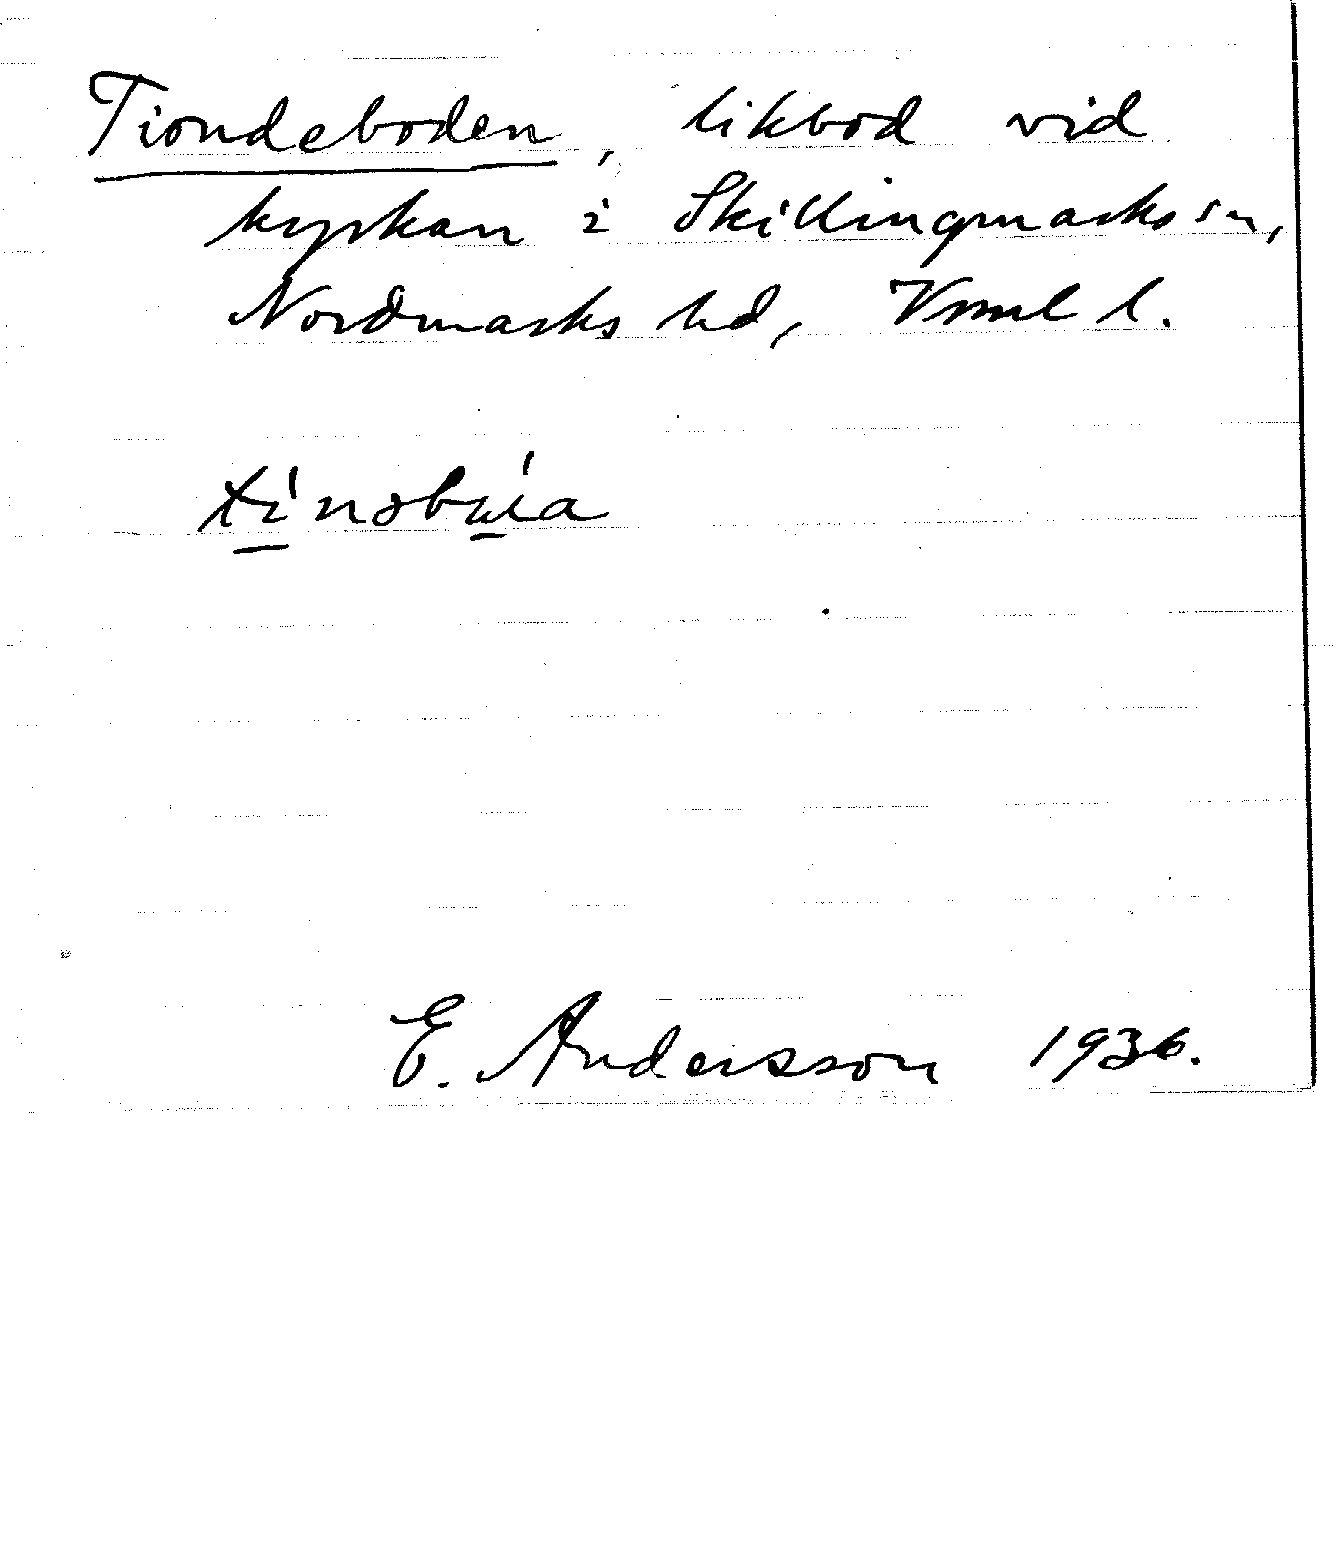 Tiondeboden, likbod vid
kyrkan i Skillingmarks sn,
Nordmarks hd, Vrml l.
E. Andersson 1936.